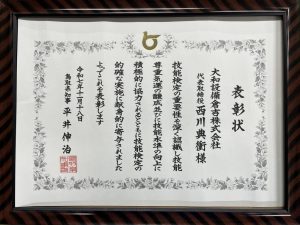 表彰状
大和設備倉吉株式会社
代表取締役 西川典衛様
技能検定の重要性を深く認識し技能
尊重気運の醸成並びに技能水準の向上に
積極的に協力されるとともに技能検定の
的確な実施に献身的に寄与されました
よってこれを表彰します
令和七年十一月十八日
鳥取県知事 平井伸治